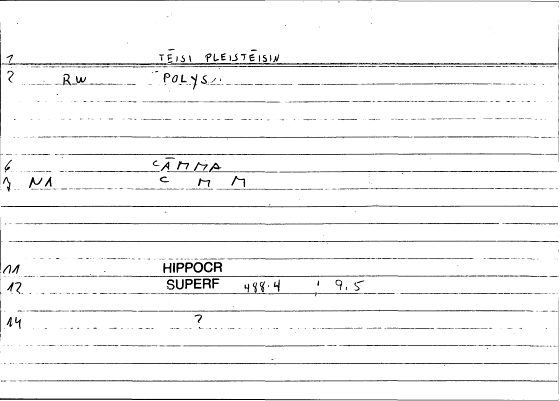 1 TĒISI PLEISTĒISIN
2 RW POLYS..
6 CĀMMA
7 NA C M M
11 HIPPOCR
12 SUPERF 488.4 ; 9.5
14 ?